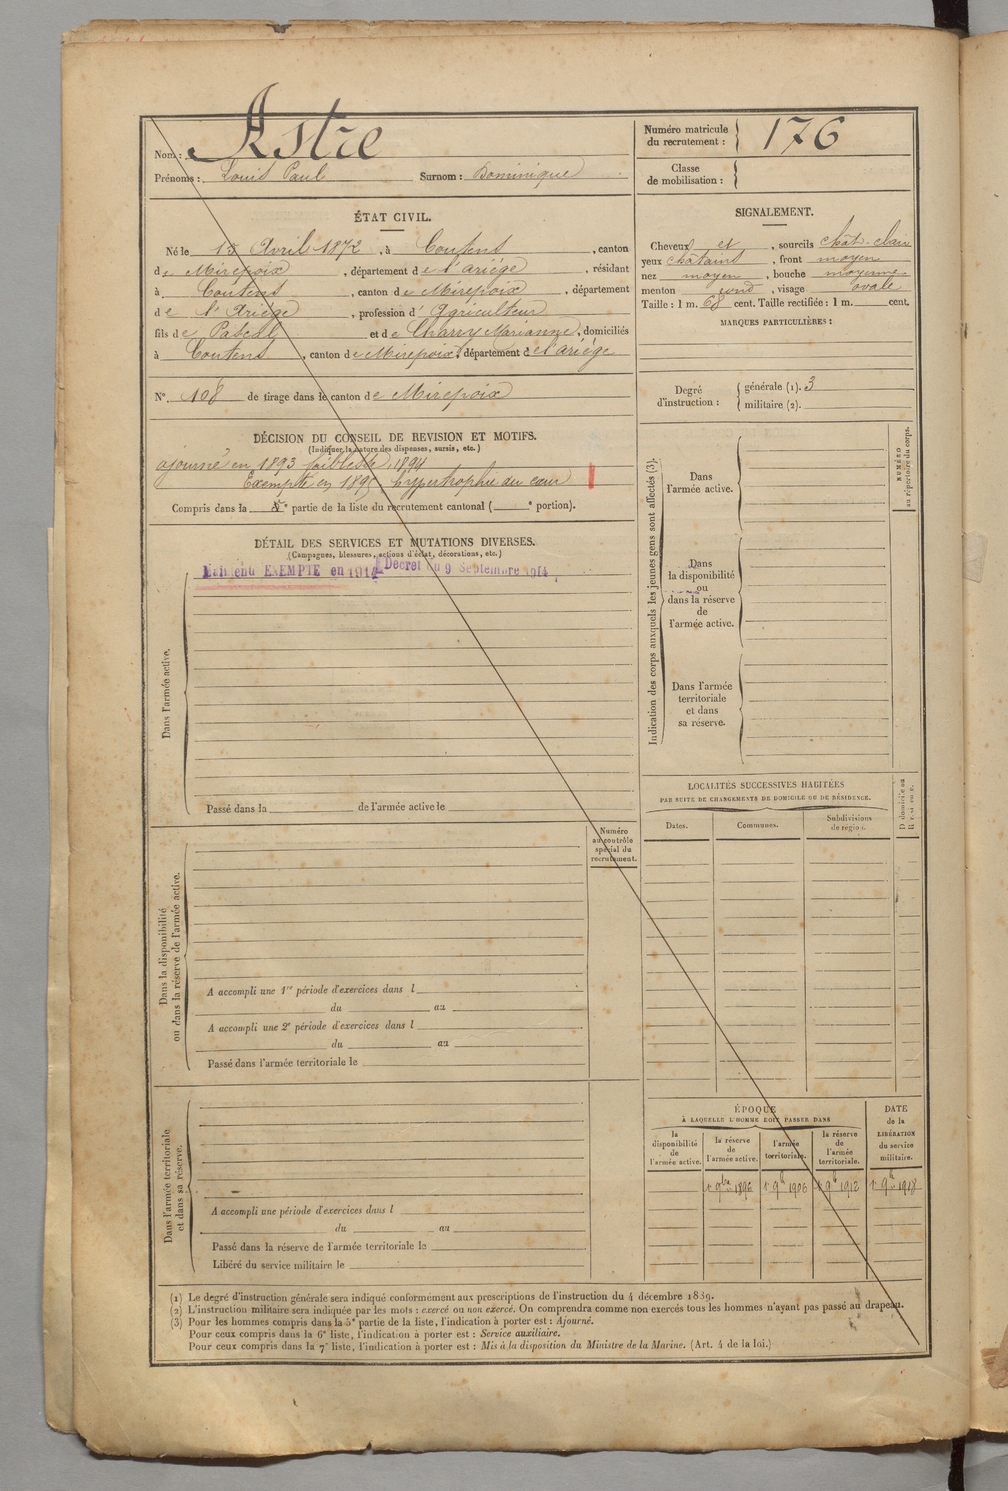 Nom : Astre
Prénoms : Louis Paul Surnom : Dominique
Numéro matricule du recrutement : 176
Classe de mobilisation :
ÉTAT CIVIL.
Né le 15 Avril 1872, à Coutens, canton
de Mirepoix, département de l'ariége, résidant
à Coutens, canton de Mirepoix, département
de l'Ariége, profession d'Agriculteur
fils de Pascal et de Charry Marianne, domiciliés
à Coutens, canton de Mirepoix, département de l'ariége
No 108 de tirage dans le canton de Mirepoix
DÉCISION DU CONSEIL DE REVISION ET MOTIFS.
(Indiquer la nature des dispenses, sursis, etc.)
ajourné en 1893 faiblesse, 1894
Exempté en 1895 hypertrophie du cœur
Compris dans la 5e partie de la liste du recrutement cantonal ( e portion).
SIGNALEMENT.
Cheveux et, sourcils chât. clair
yeux châtains, front moyen
nez moyen, bouche moyenne
menton rond, visage ovale
Taille : 1 m. 68 cent. Taille rectifiée : 1 m. cent.
MARQUES PARTICULIÈRES :
Degré d'instruction :
générale (1). 3
militaire (2).
DÉTAIL DES SERVICES ET MUTATIONS DIVERSES.
(Campagnes, blessures, actions d'éclat, décorations, etc.)
Maintenu EXEMPTÉ en 1914 Décret du 9 Septembre 1914
Dans l'armée active.
Passé dans la de l'armée active le
Numéro
au contrôle
spécial du
recrutement.
Dans la disponibilité
ou dans la réserve de l'armée active.
A accompli une 1re période d'exercices dans l
du au
A accompli une 2e période d'exercices dans l
du au
Passé dans l'armée territoriale le
Dans l'armée territoriale
et dans sa réserve.
A accompli une période d'exercices dans l
du au
Passé dans la réserve de l'armée territoriale le
Libéré du service militaire le
Indication des corps auxquels les jeunes gens sont affectés (3).
NUMÉRO
au répertoire du corps.
Dans
l'armée active.
Dans
la disponibilité
ou
dans la réserve
de
l'armée active.
Dans l'armée
territoriale
et dans
sa réserve.
LOCALITÉS SUCCESSIVES HABITÉES
PAR SUITE DE CHANGEMENTS DE DOMICILE OU DE RÉSIDENCE.
Dates. Communes. Subdivisions de région.
ÉPOQUE
À LAQUELLE L'HOMME DOIT PASSER DANS
la disponibilité de l'armée active.
la réserve de l'armée active.
l'armée territoriale.
la réserve de l'armée territoriale.
DATE de la LIBÉRATION du service militaire.
1er 9bre 1896 1er 9b 1906 1er 9b 1912 1er 9b 1918
(1) Le degré d'instruction générale sera indiqué conformément aux prescriptions de l'instruction du 4 décembre 1889.
(2) L'instruction militaire sera indiquée par les mots : exercé ou non exercé. On comprendra comme non exercés tous les hommes n'ayant pas passé au drapeau.
(3) Pour les hommes compris dans la 5e partie de la liste, l'indication à porter est : Ajourné.
Pour ceux compris dans la 6e liste, l'indication à porter est : Service auxiliaire.
Pour ceux compris dans la 7e liste, l'indication à porter est : Mis à la disposition du Ministre de la Marine. (Art. 4 de la loi.)